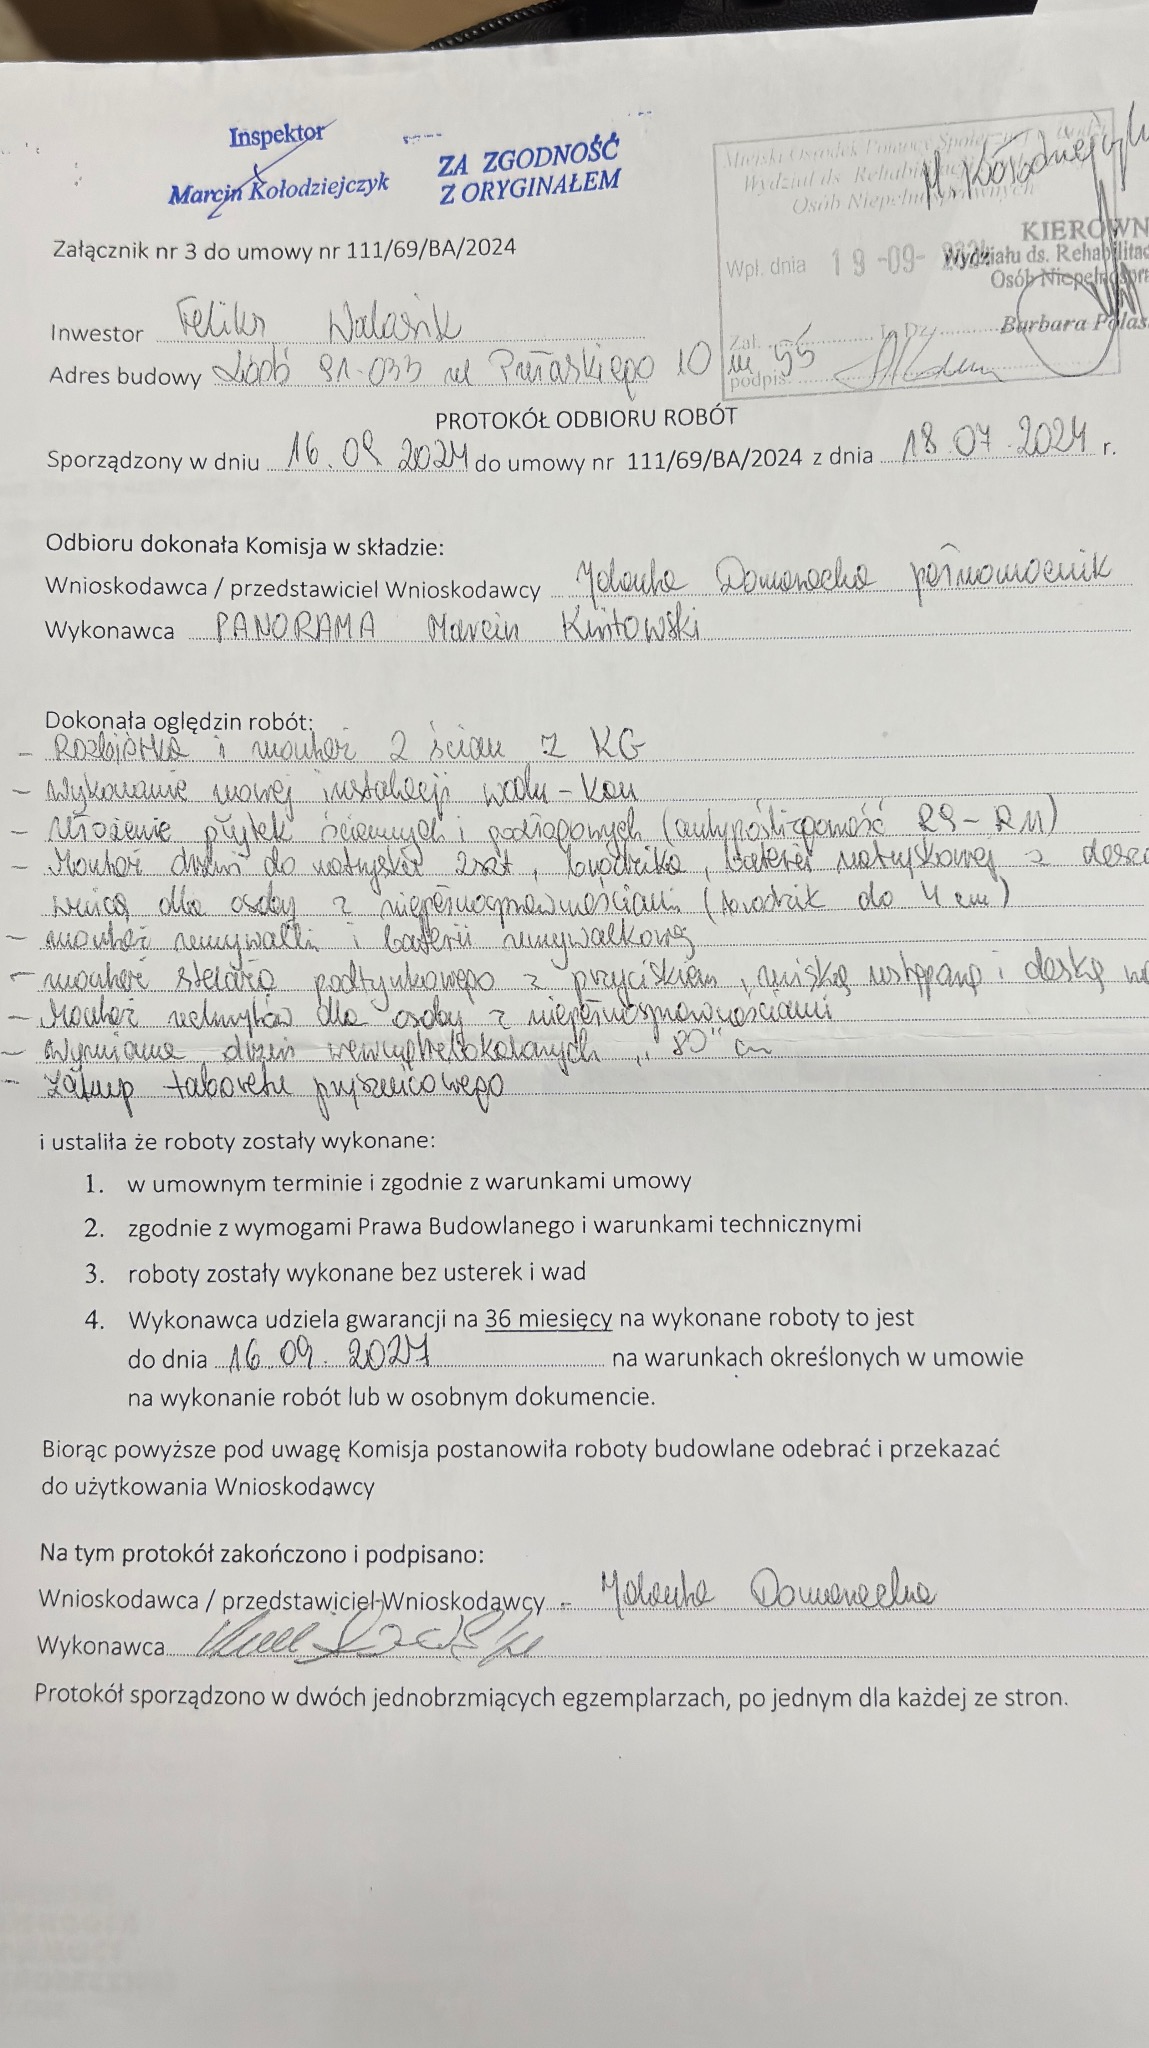 Inspektor
Marcin Kołodziejczyk
ZA ZGODNOŚĆ
Z ORYGINAŁEM
Miejski Ośrodek Pomocy Społecznej
Wydział ds. Rehabilitacji
Osób Niepełnosprawnych
M Kołodziejczyk
KIEROWN
Wydziału ds. Rehabilitac
Osób Niepełnospr
Barbara Polas
Wpł. dnia 19 -09- 2024
Zał. L. Dz.
podpis
Załącznik nr 3 do umowy nr 111/69/BA/2024
Inwestor Feliks Walasik
Adres budowy Łódź 91-033 ul Pułaskiego 10 m 55
PROTOKÓŁ ODBIORU ROBÓT
Sporządzony w dniu 16.09 2024 do umowy nr 111/69/BA/2024 z dnia 18.07.2024 r.
Odbioru dokonała Komisja w składzie:
Wnioskodawca / przedstawiciel Wnioskodawcy Jolanta Domonecka pełnomocnik
Wykonawca PANORAMA Marcin Kintowski
Dokonała oględzin robót:
- Rozbiórka i montaż 2 ścian z KG
- Wykonanie nowej instalacji wodn-kan
- Ułożenie płytek ściennych i podłogowych (antypoślizgowość R9-R11)
- Montaż drzwi do natrysku 2szt, brodzika, baterii natryskowej z deszczo
wnicą dla osoby z niepełnosprawnościami (brodzik do 4 cm)
- montaż umywalki i baterii umywalkowej
- montaż stelaża podtynkowego z przyciskiem, miską ustępową i deską wc
- Montaż uchwytów dla osoby z niepełnosprawnościami
- Wymiana drzwi wewnątrzlokalowych "80" cm
- Zakup taboretu prysznicowego
i ustaliła że roboty zostały wykonane:
1. w umownym terminie i zgodnie z warunkami umowy
2. zgodnie z wymogami Prawa Budowlanego i warunkami technicznymi
3. roboty zostały wykonane bez usterek i wad
4. Wykonawca udziela gwarancji na 36 miesięcy na wykonane roboty to jest
do dnia 16.09.2027 na warunkach określonych w umowie
na wykonanie robót lub w osobnym dokumencie.
Biorąc powyższe pod uwagę Komisja postanowiła roboty budowlane odebrać i przekazać
do użytkowania Wnioskodawcy
Na tym protokół zakończono i podpisano:
Wnioskodawca / przedstawiciel Wnioskodawcy - Jolanta Domonecka
Wykonawca
Protokół sporządzono w dwóch jednobrzmiących egzemplarzach, po jednym dla każdej ze stron.